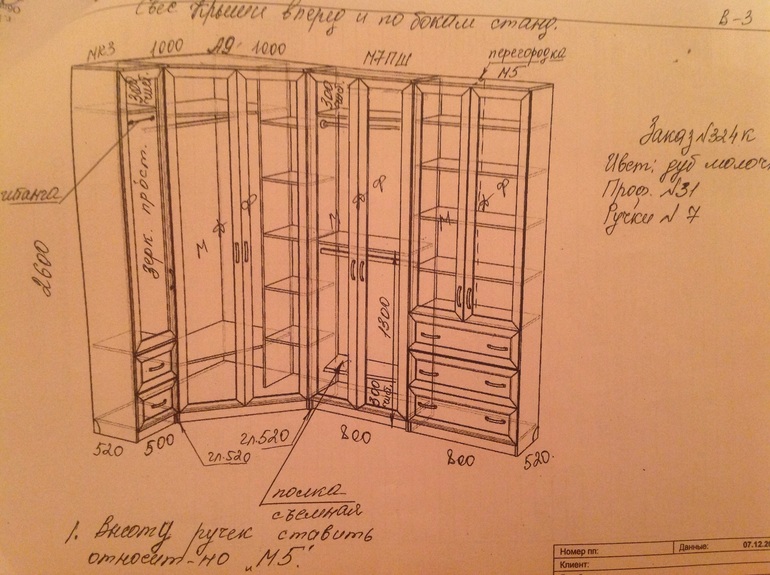 Свес крыши вперед и по бокам станд.
В-3
№3 1000 А9 1000 М7ПШ перегородка
М5
300
шт.
300
шт.
штанга
зерк. прост.
2600
Заказ №324к
Цвет: дуб молоч
Проф. №31
Ручки №7
1300
300
шт.
520 500 гл.520 гл.520 800 800 520.
полка
съемная
1. Высоту ручек ставить
относит-но „М5".
Номер пп: Данные: 07.12.20
Клиент: